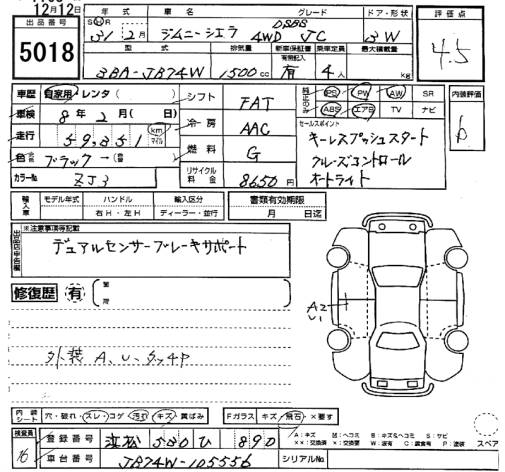 12月12日
出品番号
5018
年式 車名 グレード ドア・形状
31年2月 ジムニーシエラ DSBS 4WD JC 3W
型式 排気量 新車保証書 有無記入 乗車定員 最大積載量
3BA-JB74W 1500cc 有 4人 kg
評価点
4.5
車歴 自家用・レンタ( ) シフト FAT
車検 8年2月(日) 冷房 AAC
走行 59,851 km マイル 燃料 G
色 ブラック→( リサイクル料金 8650円
カラーNo ZJ3
純正のみ PS PW AW SR
ABS エアB TV ナビ
内装評価
b
セールスポイント
キーレスプッシュスタート
クルーズコントロール
オートライト
輸入車 モデル年式 ハンドル 輸入区分 書類有効期限
右H・左H ディーラー・並行 月 日迄
出品店申告欄 ※注意事項等記載
デュアルセンサーブレーキサポート
修復歴 有
A2
U1
外装 A、U、タッチP
内装シート 穴・破れ・スレ・コゲ・汚れ・キズ・黄ばみ Fガラス キズ・飛石・×要す
A:キズ M:ヘコミ B:キズ&ヘコミ S:サビ
××:交換済 ×:要交換 W:波有 C:腐食有 P:塗装 スペア
検査員 16
登録番号 浜松 580 ひ 890
車台番号 JB74W-105556 シリアルNo.